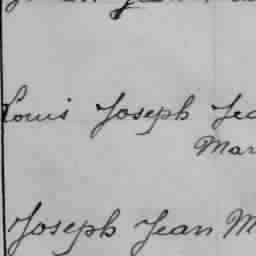 Louis Joseph Jea
Mar
Joseph Jean M